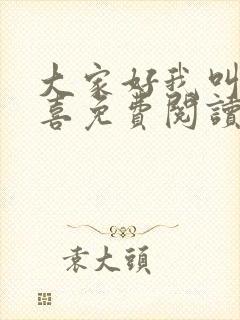 大家好我叫
喜免費閱讀
袁大頭